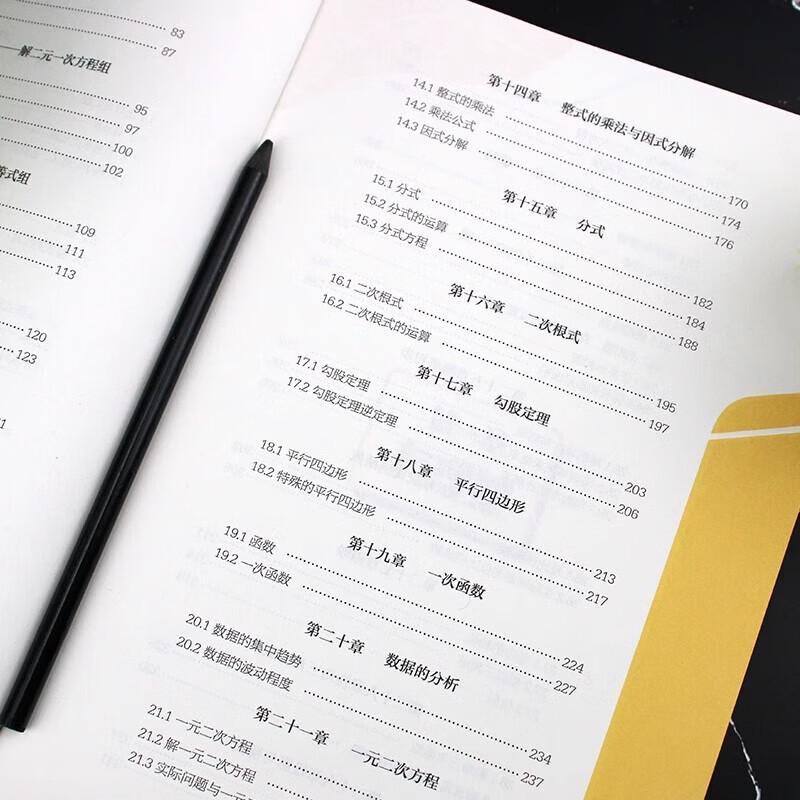 83
87
解二元一次方程组
95
97
100
102
等式组
109
111
113
120
123
第十四章 整式的乘法与因式分解
14.1 整式的乘法 170
14.2 乘法公式 174
14.3 因式分解 176
第十五章 分式
15.1 分式 182
15.2 分式的运算 184
15.3 分式方程 188
第十六章 二次根式
16.1 二次根式 195
16.2 二次根式的运算 197
第十七章 勾股定理
17.1 勾股定理 203
17.2 勾股定理逆定理 206
第十八章 平行四边形
18.1 平行四边形 213
18.2 特殊的平行四边形 217
第十九章 一次函数
19.1 函数 224
19.2 一次函数 227
第二十章 数据的分析
20.1 数据的集中趋势 234
20.2 数据的波动程度 237
第二十一章 一元二次方程
21.1 一元二次方程
21.2 解一元二次方程
21.3 实际问题与一元